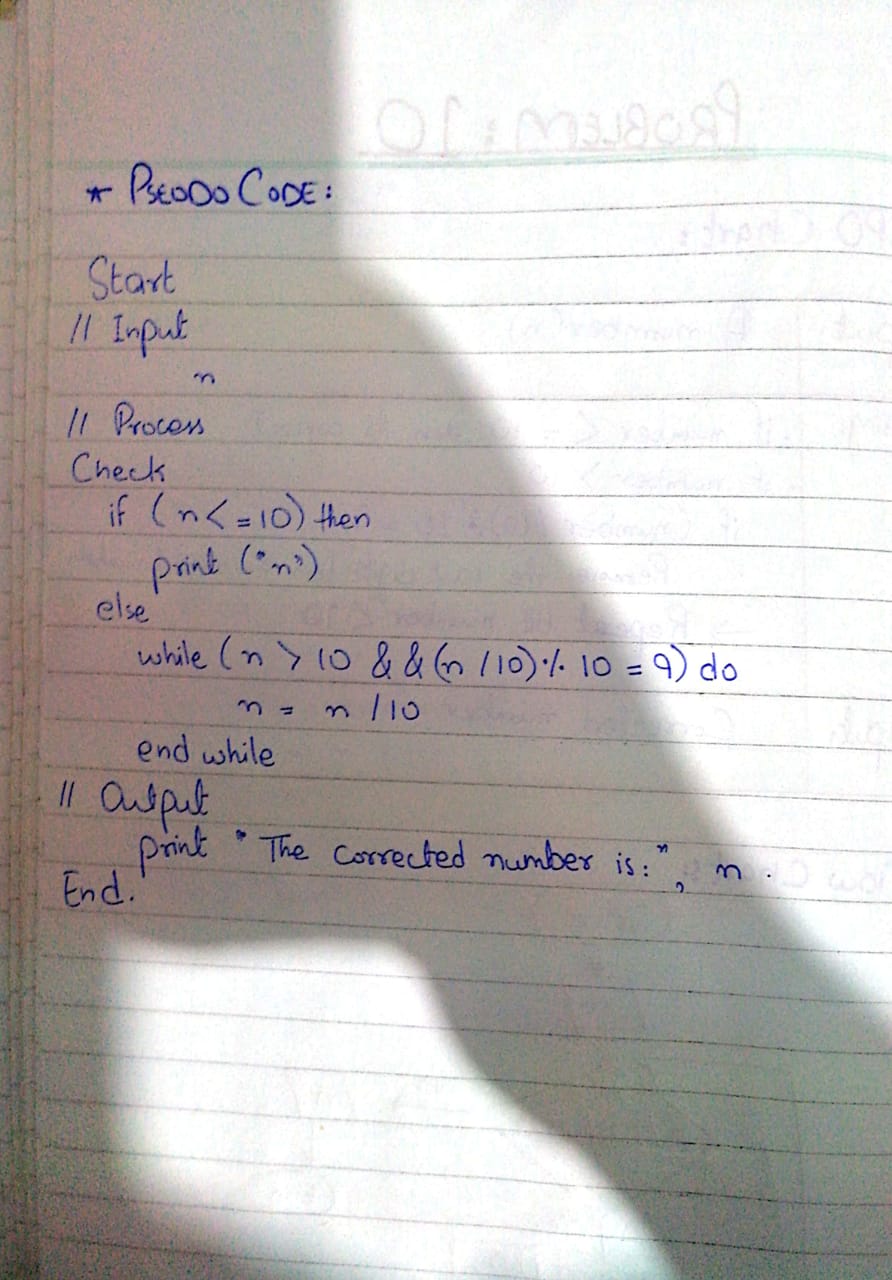 * PSEODO CODE:
Start
// Input
n
// Process
Check
if (n <= 10) then
print ("n")
else
while (n > 10 & & (n / 10) % 10 = 9) do
n = n / 10
end while
// Output
print " The corrected number is:", n .
End.